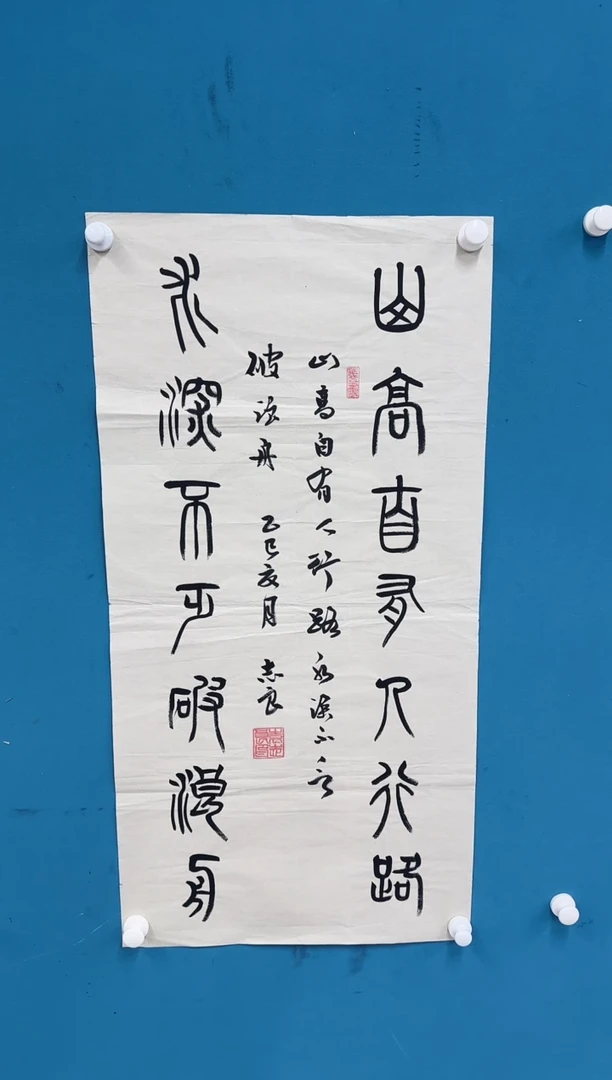 山高自有人行路
山高自有人行路水深不乏
破浪舟 乙巳亥月 志良
水深不乏破浪舟